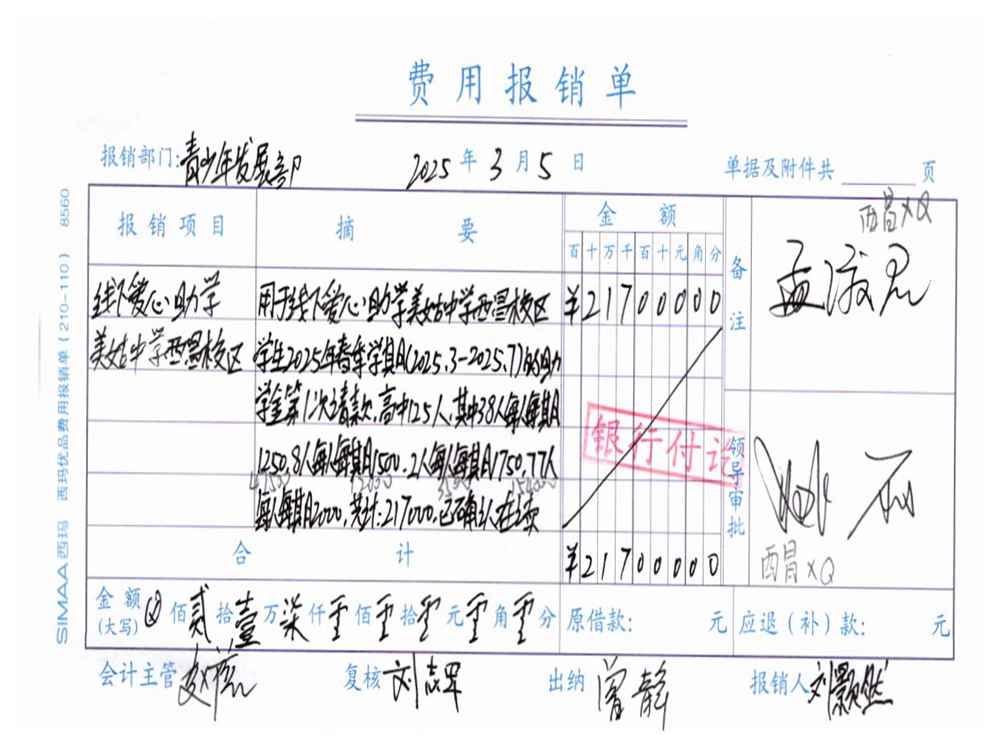 费用报销单
报销部门:青少年发展部 2025年3月5日 单据及附件共 页
西昌XQ
报销项目 摘要 金额 备注
百十万千百十元角分
线下爱心助学 用于线下爱心助学美姑中学西昌校区 ¥21700000
美姑中学西昌校区 学生2025年春季学期(2025.3-2025.7)的助
学金第1次请款,高中125人,其中38人每人每期
1250,8人每人每期1500.2人每人每期1750,77人
每人每期2000,共计:217000,已确认在读
银行付讫
领导审批
西昌XQ
合计 ¥21700000
金额(大写)⊗佰贰拾壹万柒仟零佰零拾零元零角零分 原借款: 元 应退(补)款: 元
会计主管 复核 刘志军 出纳 曾静 报销人 刘颢然
SIMAA西玛 西玛优品费用报销单(210-110) 8560